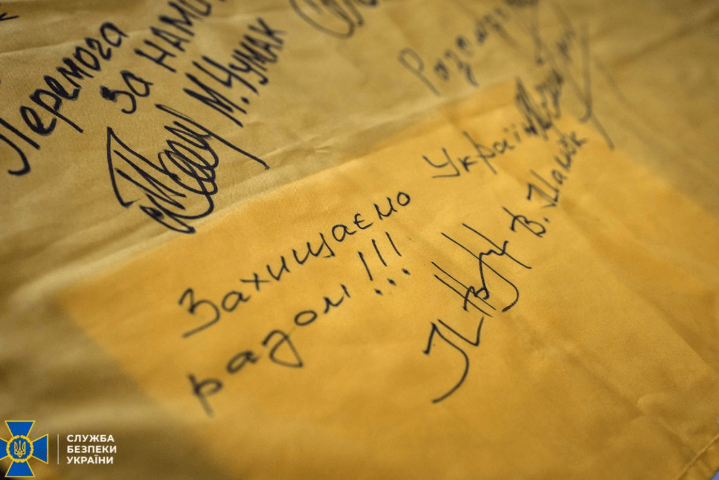 Перемога
За НАМИ
М. Чумак
Разом
Захищаємо Україну
разом!!!
СЛУЖБА
БЕЗПЕКИ
УКРАЇНИ